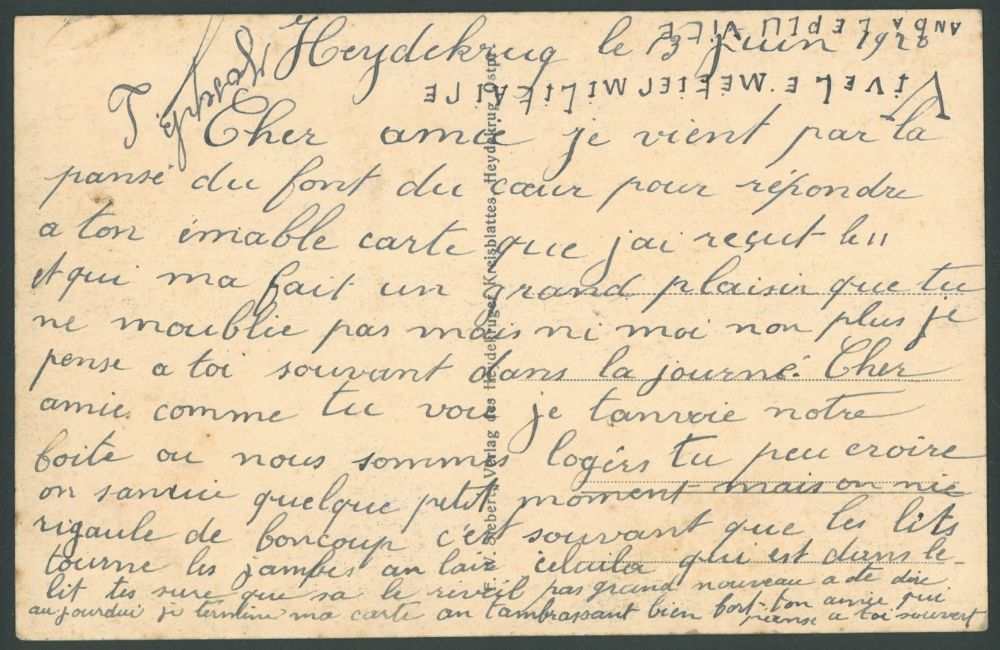 Heydekrug le 13 juin 192
Joseph
T.
Cher amie je vient par la
pansé du font du cœur pour répondre
a ton émable carte que jai reçut le 11
et qui ma fait un grand plaisir que tu
ne moublie pas mais ni moi non plus je
pense a toi souvant dans la journé. Cher
amie comme tu vois je tanvoie notre
boite ou nous sommes logérs tu peu croire
on sanuie quelque petit moment mais on nie
rigaule de boncoup c'est souvant que les lits
tourne les jambes an laire celuila qui est dans le
lit tes sure que sa le reveil pas grand nouveau a te dire
aujourdui je termine ma carte an tambrassant bien fort ton amie qui
panse a toi souvert
IVE LE MEEIER MILITAIRE
AND A LE PLU VITE
Verlag des Heydekruger Kreisblattes, Heydekrug, Ostpr.